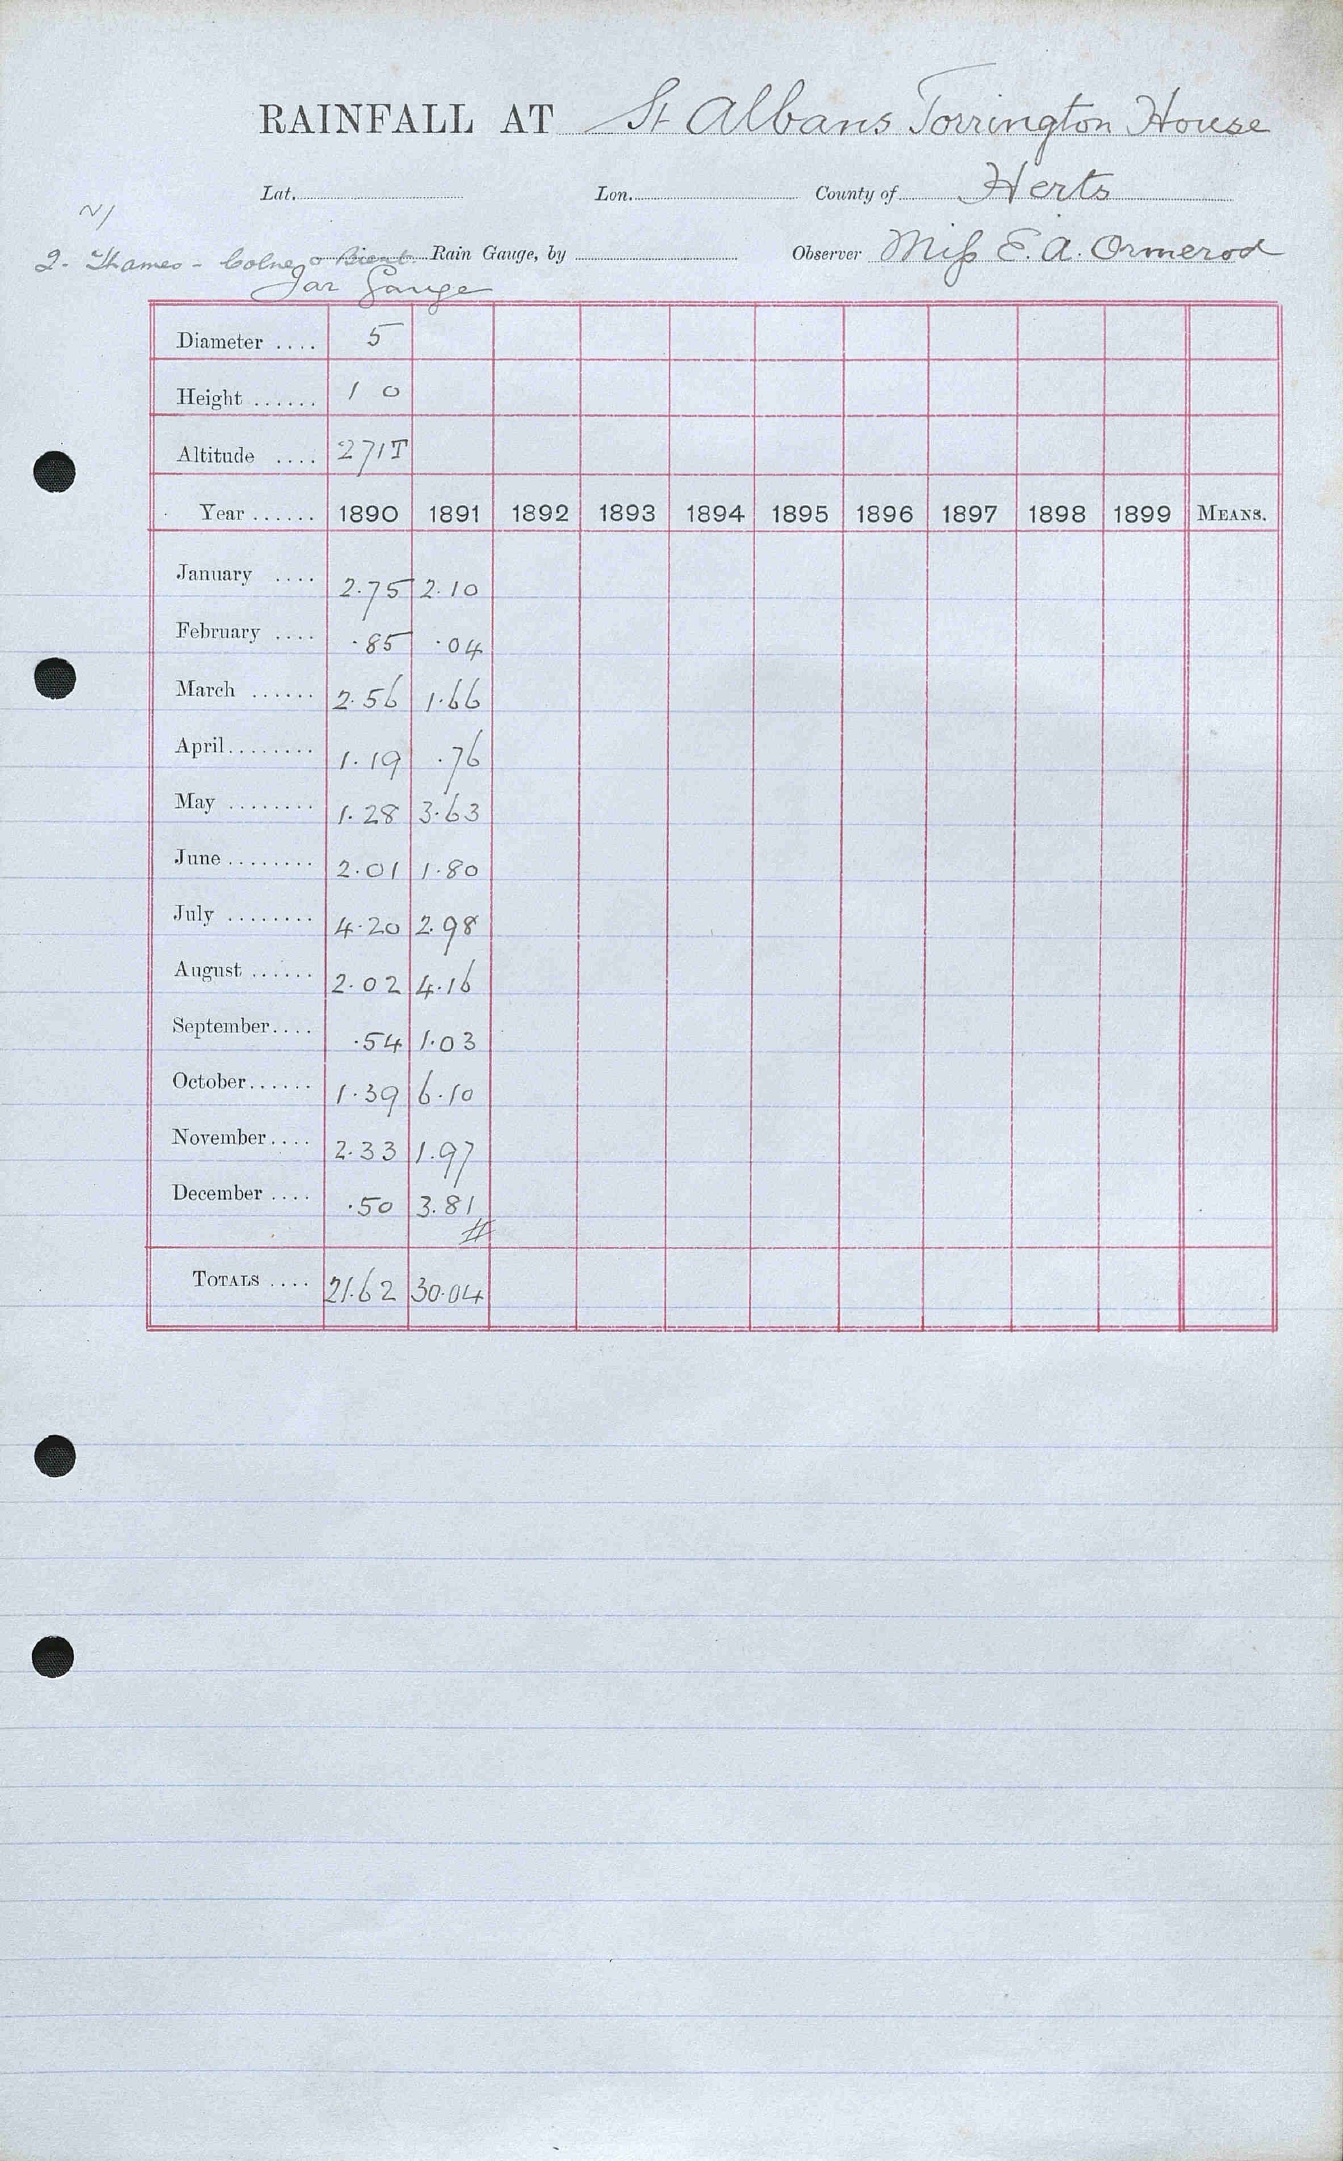 RAINFALL AT St Albans Torrington House
Lat. Lon. County of Herts
2. Thames - Colne Rain Gauge, by Observer Miss E. A. Ormerod
Jar Gauge
Diameter .... 5
Height ...... 1 0
Altitude .... 271T
Year ...... 1890 1891 1892 1893 1894 1895 1896 1897 1898 1899 MEANS.
January .... 2.75 2.10
February .... .85 .04
March ...... 2.56 1.66
April........ 1.19 .76
May ........ 1.28 3.63
June........ 2.01 1.80
July ........ 4.20 2.98
August ...... 2.02 4.16
September.... .54 1.03
October...... 1.39 6.10
November.... 2.33 1.97
December .... .50 3.81
#
TOTALS .... 21.62 30.04